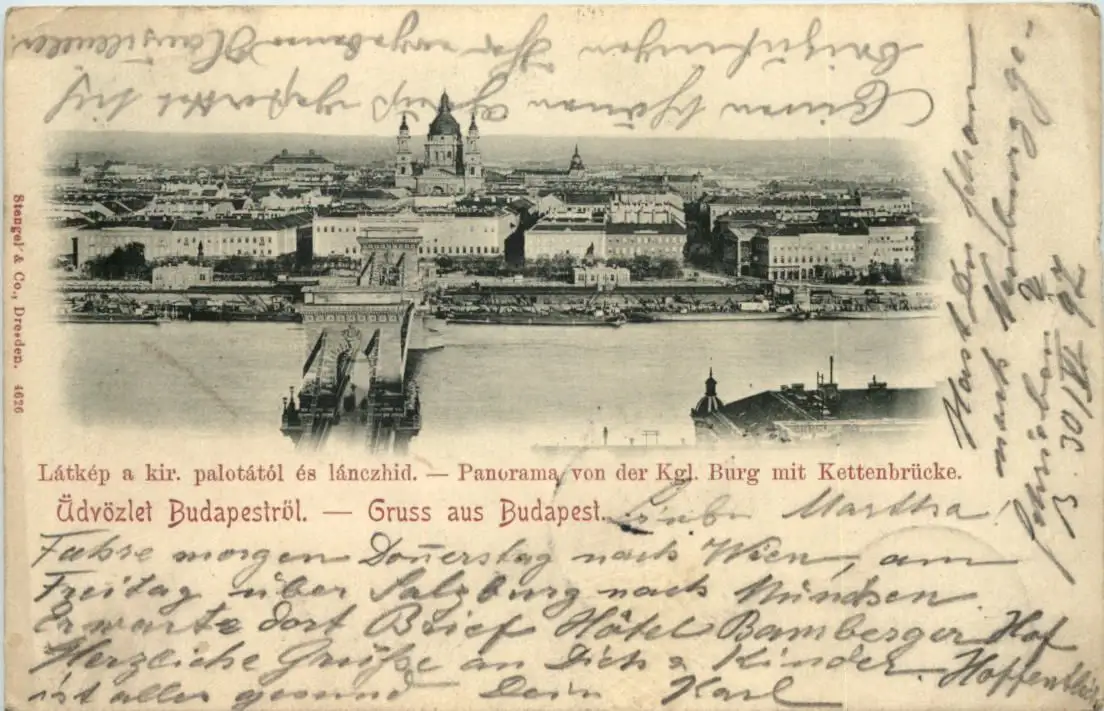 Stengel & Co., Dresden. 4626
Látkép a kir. palotától és lánczhid. — Panorama von der Kgl. Burg mit Kettenbrücke.
Üdvözlet Budapestről. — Gruss aus Budapest.
Liebe Martha!
Fahre morgen Doñerstag nach Wien, am
Freitag über Salzburg nach München.
Erwarte dort Brief Hôtel Bamberger Hof
Herzliche Grüße an Dich & Kinder. Hoffentlich
ist alles gesund Dein Karl
Hast du schon
nach Nürnberg ge-
schrieben?
B. 30/VI 97